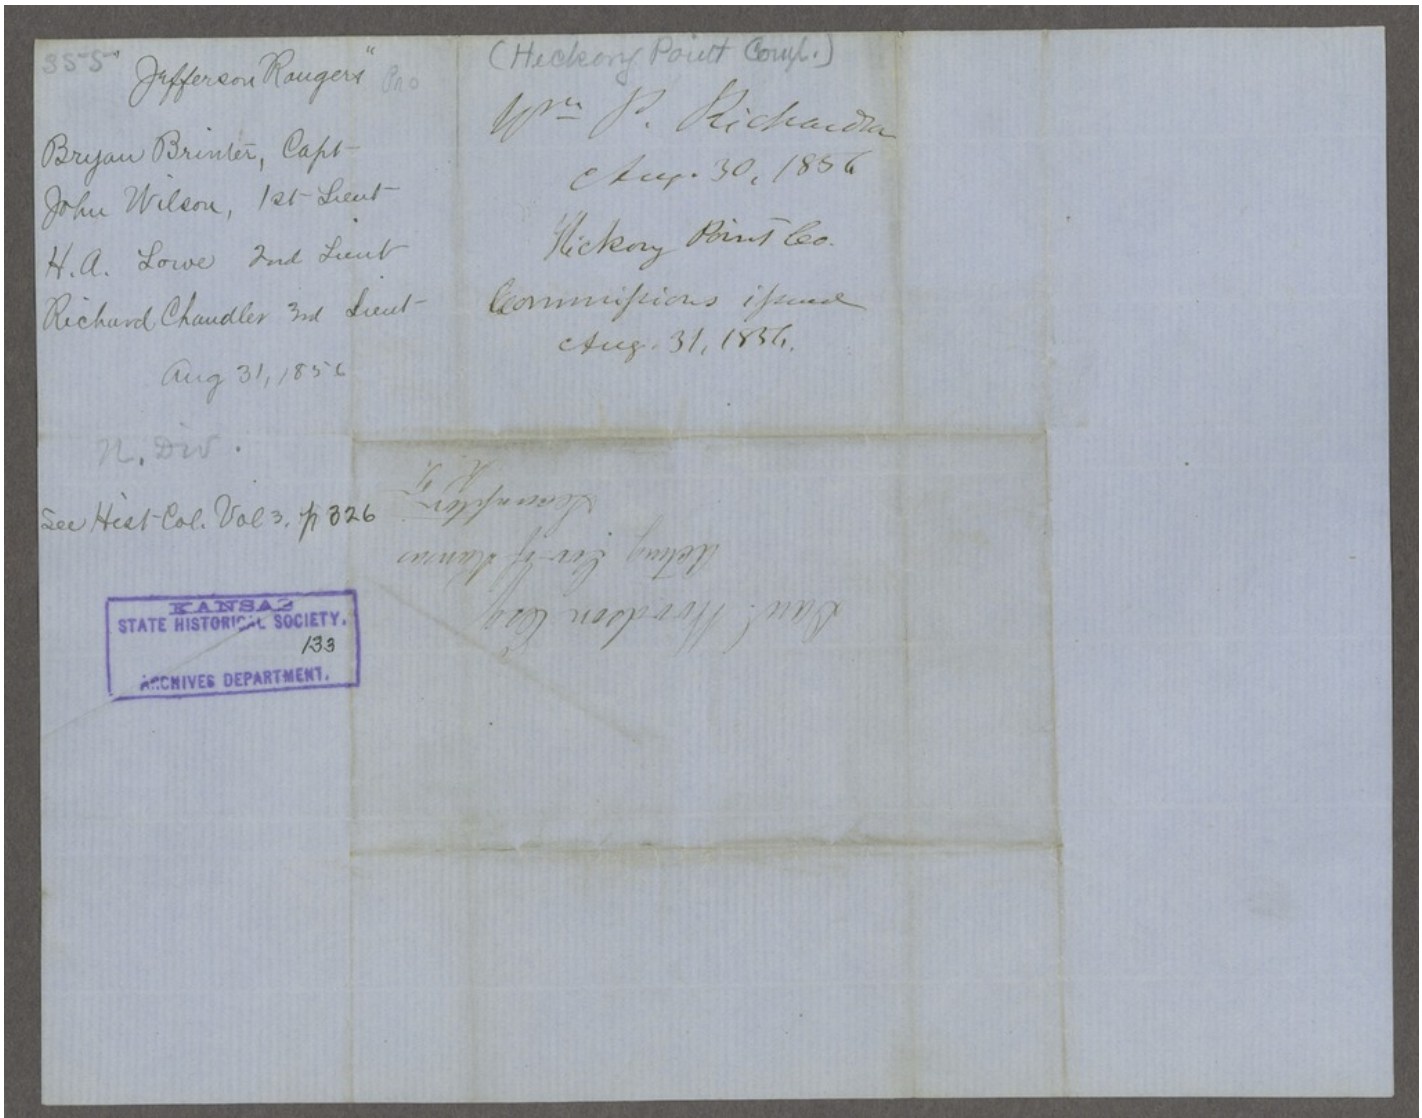 355
Jefferson Rangers"
Pro
Bryan Brinter, Capt
John Wilson, 1st Lieut
H. A. Lowe 2nd Lieut
Richard Chandler 3rd Lieut
Aug 31, 1856
N. Div.
See Hist Col. Vol 3, p 326
KANSAS
STATE HISTORICAL SOCIETY.
133
ARCHIVES DEPARTMENT.
(Hickory Point Comp.)
Wm P. Richardson
Aug. 30, 1856
Hickory Point Co.
Commissions issued
Aug. 31, 1856.
Danl. Woodson Esq
Acting Gov of Kansas
Lecompton
K. T.